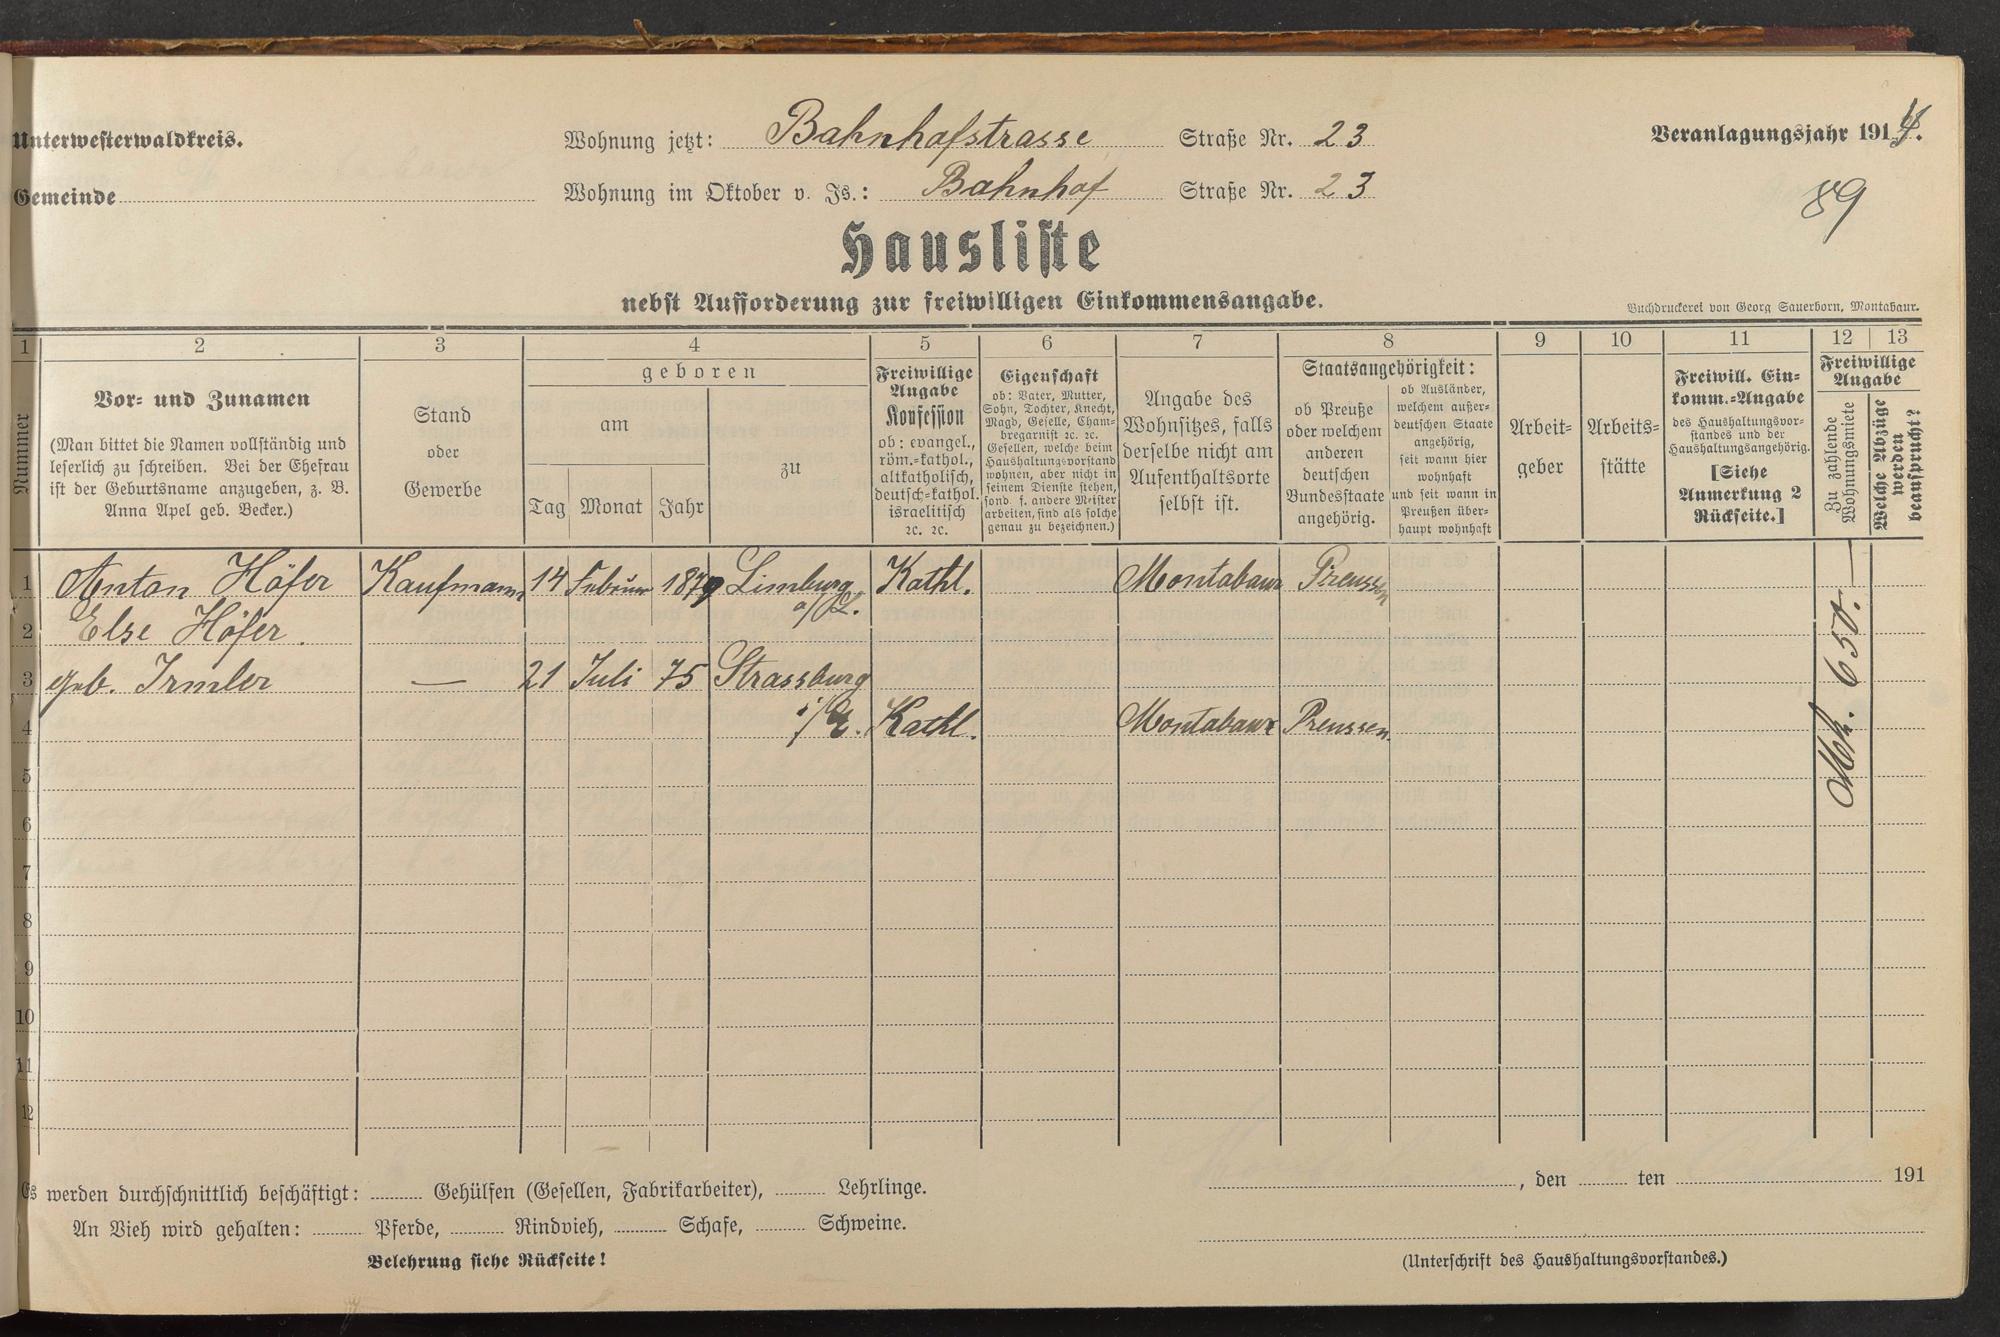 Unterwesterwaldkreis.
Wohnung jetzt: Bahnhofstrasse Straße Nr. 23
Veranlagungsjahr 1914.
Gemeinde
Wohnung im Oktober v. Js.: Bahnhof Straße Nr. 23
89
Hausliste
nebst Aufforderung zur freiwilligen Einkommensangabe.
Buchdruckerei von Georg Sauerborn, Montabaur.
1 2 3 4 5 6 7 8 9 10 11 12 13
Nummer
Vor- und Zunamen
(Man bittet die Namen vollständig und
leserlich zu schreiben. Bei der Ehefrau
ist der Geburtsname anzugeben, z. B.
Anna Apel geb. Becker.)
Stand
oder
Gewerbe
geboren
am
Tag Monat Jahr
zu
Freiwillige
Angabe
Konfession
ob: evangel.,
röm.-kathol.,
altkatholisch,
deutsch-kathol.
israelitisch
ꝛc. ꝛc.
Eigenschaft
ob: Vater, Mutter,
Sohn, Tochter, Knecht,
Magd, Geselle, Cham-
bregarnist ꝛc. ꝛc.
Gesellen, welche beim
Haushaltungsvorstand
wohnen, aber nicht in
seinem Dienste stehen,
sond. f. andere Meister
arbeiten, sind als solche
genau zu bezeichnen.)
Angabe des
Wohnsitzes, falls
derselbe nicht am
Aufenthaltsorte
selbst ist.
Staatsangehörigkeit:
ob Preuße
oder welchem
anderen
deutschen
Bundesstaate
angehörig.
ob Ausländer,
welchem außer-
deutschen Staate
angehörig,
seit wann hier
wohnhaft
und seit wann in
Preußen über-
haupt wohnhaft
Arbeit-
geber
Arbeits-
stätte
Freiwill. Ein-
komm.-Angabe
des Haushaltungsvor-
standes und der
Haushaltungsangehörig.
[Siehe
Anmerkung 2
Rückseite.]
Freiwillige
Angabe
Zu zahlende
Wohnungsmiete
Welche Abzüge
werden
beansprucht?
1 Anton Höfer Kaufmann 14 Februar 1879 Limburg Kathl. Montabaur Preussen
a/L.
2 Else Höfer.
3 geb. Irmler — 21 Juli 75 Strassburg
4 i/E. Kathl. Montabaur Preussen.
Mk. 650.—
5
6
7
8
9
10
11
12
Es werden durchschnittlich beschäftigt: Gehülfen (Gesellen, Fabrikarbeiter), Lehrlinge.
, den ten 191
An Vieh wird gehalten: Pferde, Rindvieh, Schafe, Schweine.
Belehrung siehe Rückseite!
(Unterschrift des Haushaltungsvorstandes.)